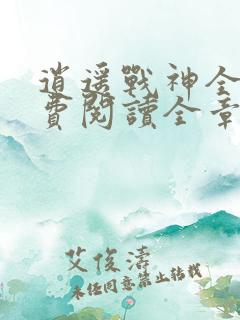 逍遥戰神全
費閱讀全章
艾俊濤
未經同意禁止轉載